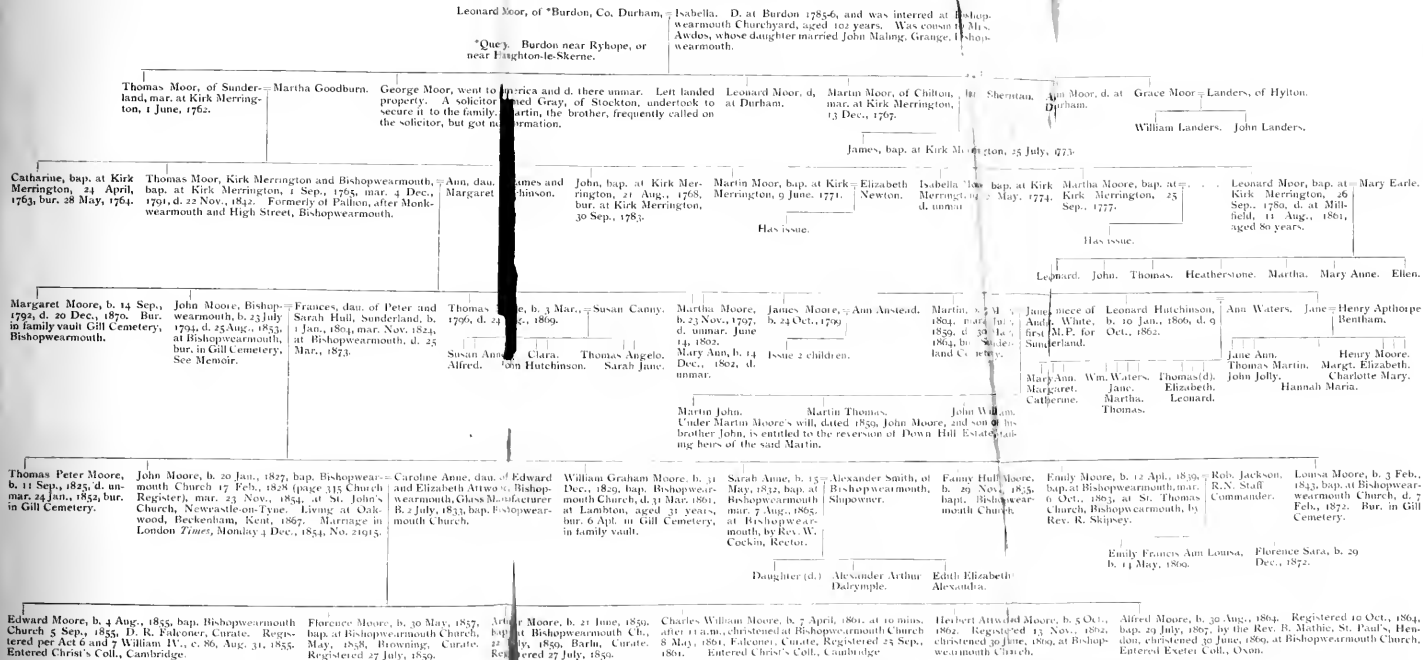 Leonard Moor, of *Burdon, Co. Durham, = Isabella. D. at Burdon 1785-6, and was interred at Bishop-
wearmouth Churchyard, aged 102 years. Was cousin to Mrs.
Awdos, whose daughter married John Maling, Grange, Bishop-
wearmouth.
*Query. Burdon near Ryhope, or
near Haughton-le-Skerne.
Thomas Moor, of Sunder-
land, mar. at Kirk Merring-
ton, 1 June, 1762.
= Martha Goodburn.
George Moor, went to America and d. there unmar. Left landed
property. A solicitor named Gray, of Stockton, undertook to
secure it to the family. Martin, the brother, frequently called on
the solicitor, but got no information.
Leonard Moor, d.
at Durham.
Martin Moor, of Chilton,
mar. at Kirk Merrington,
13 Dec., 1767.
Sheraton.
Ann Moor, d. at
Durham.
Grace Moor = Landers, of Hylton.
William Landers. John Landers.
James, bap. at Kirk Merrington, 25 July, 1773.
Catharine, bap. at Kirk
Merrington, 24 April,
1763, bur. 28 May, 1764.
Thomas Moor, Kirk Merrington and Bishopwearmouth,
bap. at Kirk Merrington, 1 Sep., 1765, mar. 4 Dec.,
1791, d. 22 Nov., 1842. Formerly of Pallion, after Monk-
wearmouth and High Street, Bishopwearmouth.
= Ann, dau. James and
Margaret Hutchinson.
John, bap. at Kirk Mer-
rington, 21 Aug., 1768,
bur. at Kirk Merrington,
30 Sep., 1783.
Martin Moor, bap. at Kirk
Merrington, 9 June, 1771.
= Elizabeth
Newton.
Has issue.
Isabella Moor bap. at Kirk
Merrington May, 1774.
d. unmar
Martha Moore, bap. at = . .
Kirk Merrington, 25
Sep., 1777.
Has issue.
Leonard Moor, bap. at = Mary Earle.
Kirk Merrington, 26
Sep., 1780, d. at Mill-
field, 11 Aug., 1861,
aged 80 years.
Leonard. John. Thomas. Heatherstone. Martha. Mary Anne. Ellen.
Margaret Moore, b. 14 Sep.,
1792, d. 20 Dec., 1870. Bur.
in family vault Gill Cemetery,
Bishopwearmouth.
John Moore, Bishop-
wearmouth, b. 23 July
1794, d. 25 Aug., 1853,
at Bishopwearmouth,
bur. in Gill Cemetery,
See Memoir.
= Frances, dau. of Peter and
Sarah Hull, Sunderland, b.
1 Jan., 1804, mar. Nov. 1824,
at Bishopwearmouth, d. 25
Mar., 1873.
Thomas Moore, b. 3 Mar., = Susan Canny.
1796, d. 24 Aug., 1869.
Susan Anne. Clara. Thomas Angelo.
Alfred. John Hutchinson. Sarah Jane.
Martha Moore,
b. 23 Nov., 1797,
d. unmar. June
14, 1802.
Mary Ann, b. 14
Dec., 1802, d.
unmar.
James Moore, = Ann Anstead.
b. 24 Oct., 1799
Issue 2 children.
Martin,
1804, mar.
1859, d. 30
1864, bu Sunder-
land Cemetery.
Jane, niece of
Andw. White,
first M.P. for
Sunderland.
Leonard Hutchinson, = Ann Waters.
b. 10 Jan., 1806, d. 9
Oct., 1862.
Jane = Henry Apthorpe
Bentham.
Mary Ann. Wm. Waters. Thomas (d).
Margaret. Jane. Elizabeth.
Catherine. Martha. Leonard.
Thomas.
Jane Ann. Henry Moore.
Thomas Martin. Margt. Elizabeth.
John Jolly. Charlotte Mary.
Hannah Maria.
Martin John. Martin Thomas. John William.
Under Martin Moore's will, dated 1859, John Moore, 2nd son of his
brother John, is entitled to the reversion of Down Hill Estate, fail-
ing heirs of the said Martin.
Thomas Peter Moore,
b. 11 Sep., 1825, d. un-
mar. 24 Jan., 1852, bur.
in Gill Cemetery.
John Moore, b. 20 Jan., 1827, bap. Bishopwear-
mouth Church 17 Feb., 1828 (page 315 Church
Register), mar. 23 Nov., 1854, at St. John's
Church, Newcastle-on-Tyne. Living at Oak-
wood, Beckenham, Kent, 1867. Marriage in
London Times, Monday 4 Dec., 1854, No. 21915.
= Caroline Anne, dau. of Edward
and Elizabeth Attwood, Bishop-
wearmouth, Glass Manufacturer
B. 2 July, 1833, bap. Bishopwear-
mouth Church.
William Graham Moore, b. 31
Dec., 1829, bap. Bishopwear-
mouth Church, d. 31 Mar. 1861,
at Lambton, aged 31 years,
bur. 6 Apl. in Gill Cemetery,
in family vault.
Sarah Anne, b. 15
May, 1832, bap. at
Bishopwearmouth,
mar. 7 Aug., 1865,
at Bishopwear-
mouth, by Rev. W.
Cockin, Rector.
= Alexander Smith, of
Bishopwearmouth,
Shipowner.
Daughter (d.) Alexander Arthur
Dalrymple.
Edith Elizabeth
Alexandra.
Fanny Hull Moore,
b. 29 Nov., 1835,
bapt. Bishopwear-
mouth Church.
Emily Moore, b. 12 Apl., 1839,
bap. at Bishopwearmouth, mar.
6 Oct., 1863, at St. Thomas
Church, Bishopwearmouth, by
Rev. R. Skipsey.
= Rob. Jackson,
R.N. Staff
Commander.
Emily Francis Ann Louisa,
b. 14 May, 1869.
Florence Sara, b. 29
Dec., 1872.
Louisa Moore, b. 3 Feb.,
1843, bap. at Bishopwear-
wearmouth Church, d. 7
Feb., 1872. Bur. in Gill
Cemetery.
Edward Moore, b. 4 Aug., 1855, bap. Bishopwearmouth
Church 5 Sep., 1855, D. R. Falconer, Curate. Regis-
tered per Act 6 and 7 William IV., c. 86, Aug. 31, 1855.
Entered Christ's Coll., Cambridge.
Florence Moore, b. 30 May, 1857,
bap. at Bishopwearmouth Church,
May, 1858, Browning, Curate.
Registered 27 July, 1859.
Arthur Moore, b. 21 June, 1859,
bap. at Bishopwearmouth Ch.,
22 July, 1859, Barlu, Curate.
Registered 27 July, 1859.
Charles William Moore, b. 7 April, 1861, at 10 mins.
after 11 a.m., christened at Bishopwearmouth Church
8 May, 1861, Falconer, Curate, Registered 25 Sep.,
1861. Entered Christ's Coll., Cambridge
Herbert Attwood Moore, b. 5 Oct.,
1862. Registered 13 Nov., 1862,
christened 30 June, 1869, at Bishop-
wearmouth Church.
Alfred Moore, b. 30 Aug., 1864. Registered 10 Oct., 1864,
bap. 29 July, 1867, by the Rev. B. Mathie, St. Paul's, Hen-
don, christened 30 June, 1869, at Bishopwearmouth Church,
Entered Exeter Coll., Oxon.